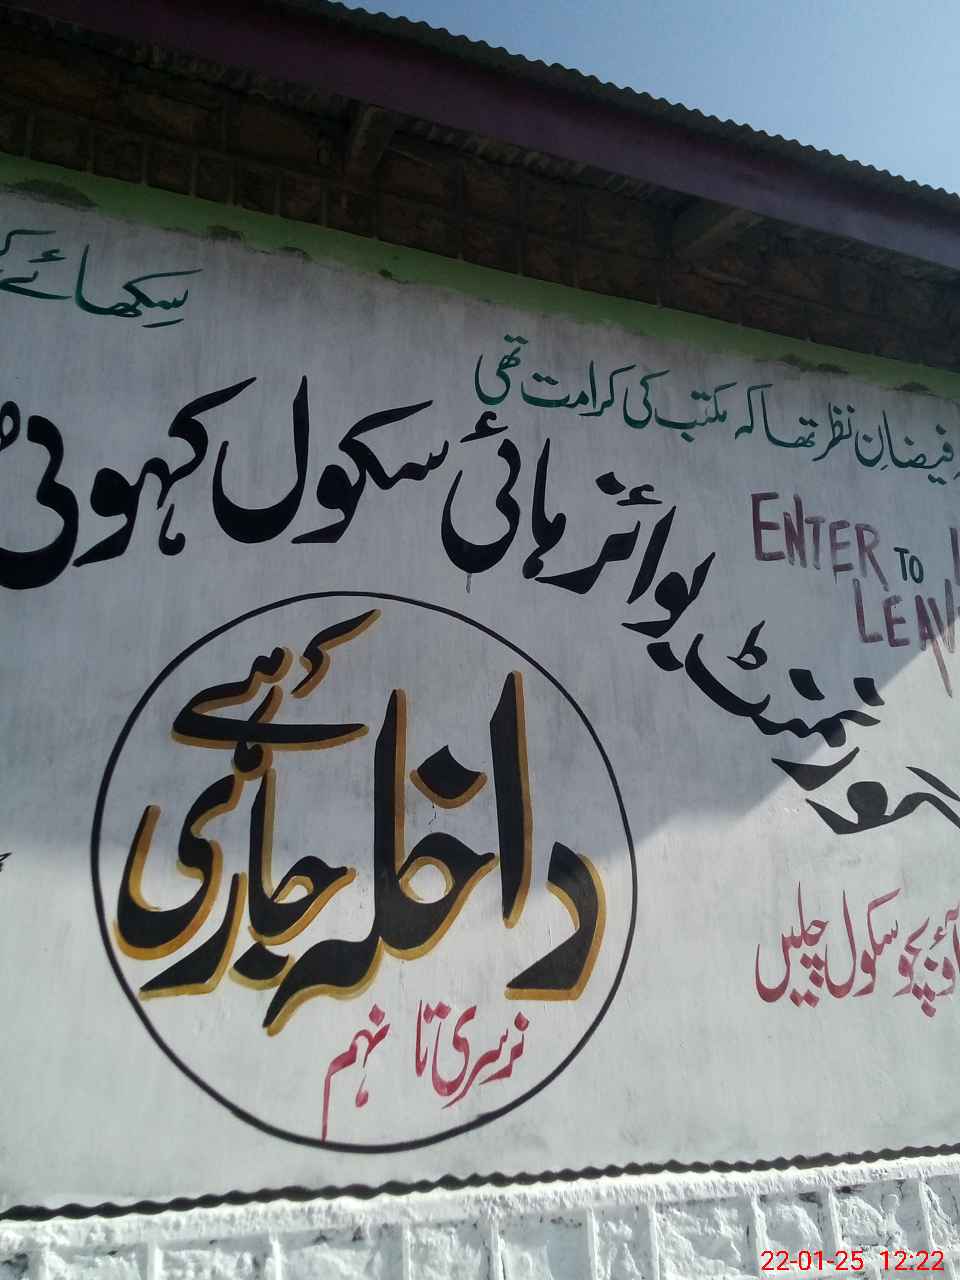 فیضانِ نظر تھا کہ مکتب کی کرامت تھی
سکھائے
بوائز ہائی سکول کہوئی
ENTER TO
LEAV
داخلہ جاری ہے
نرسری تا نہم
آؤ بچو سکول چلیں
22-01-25 12:22